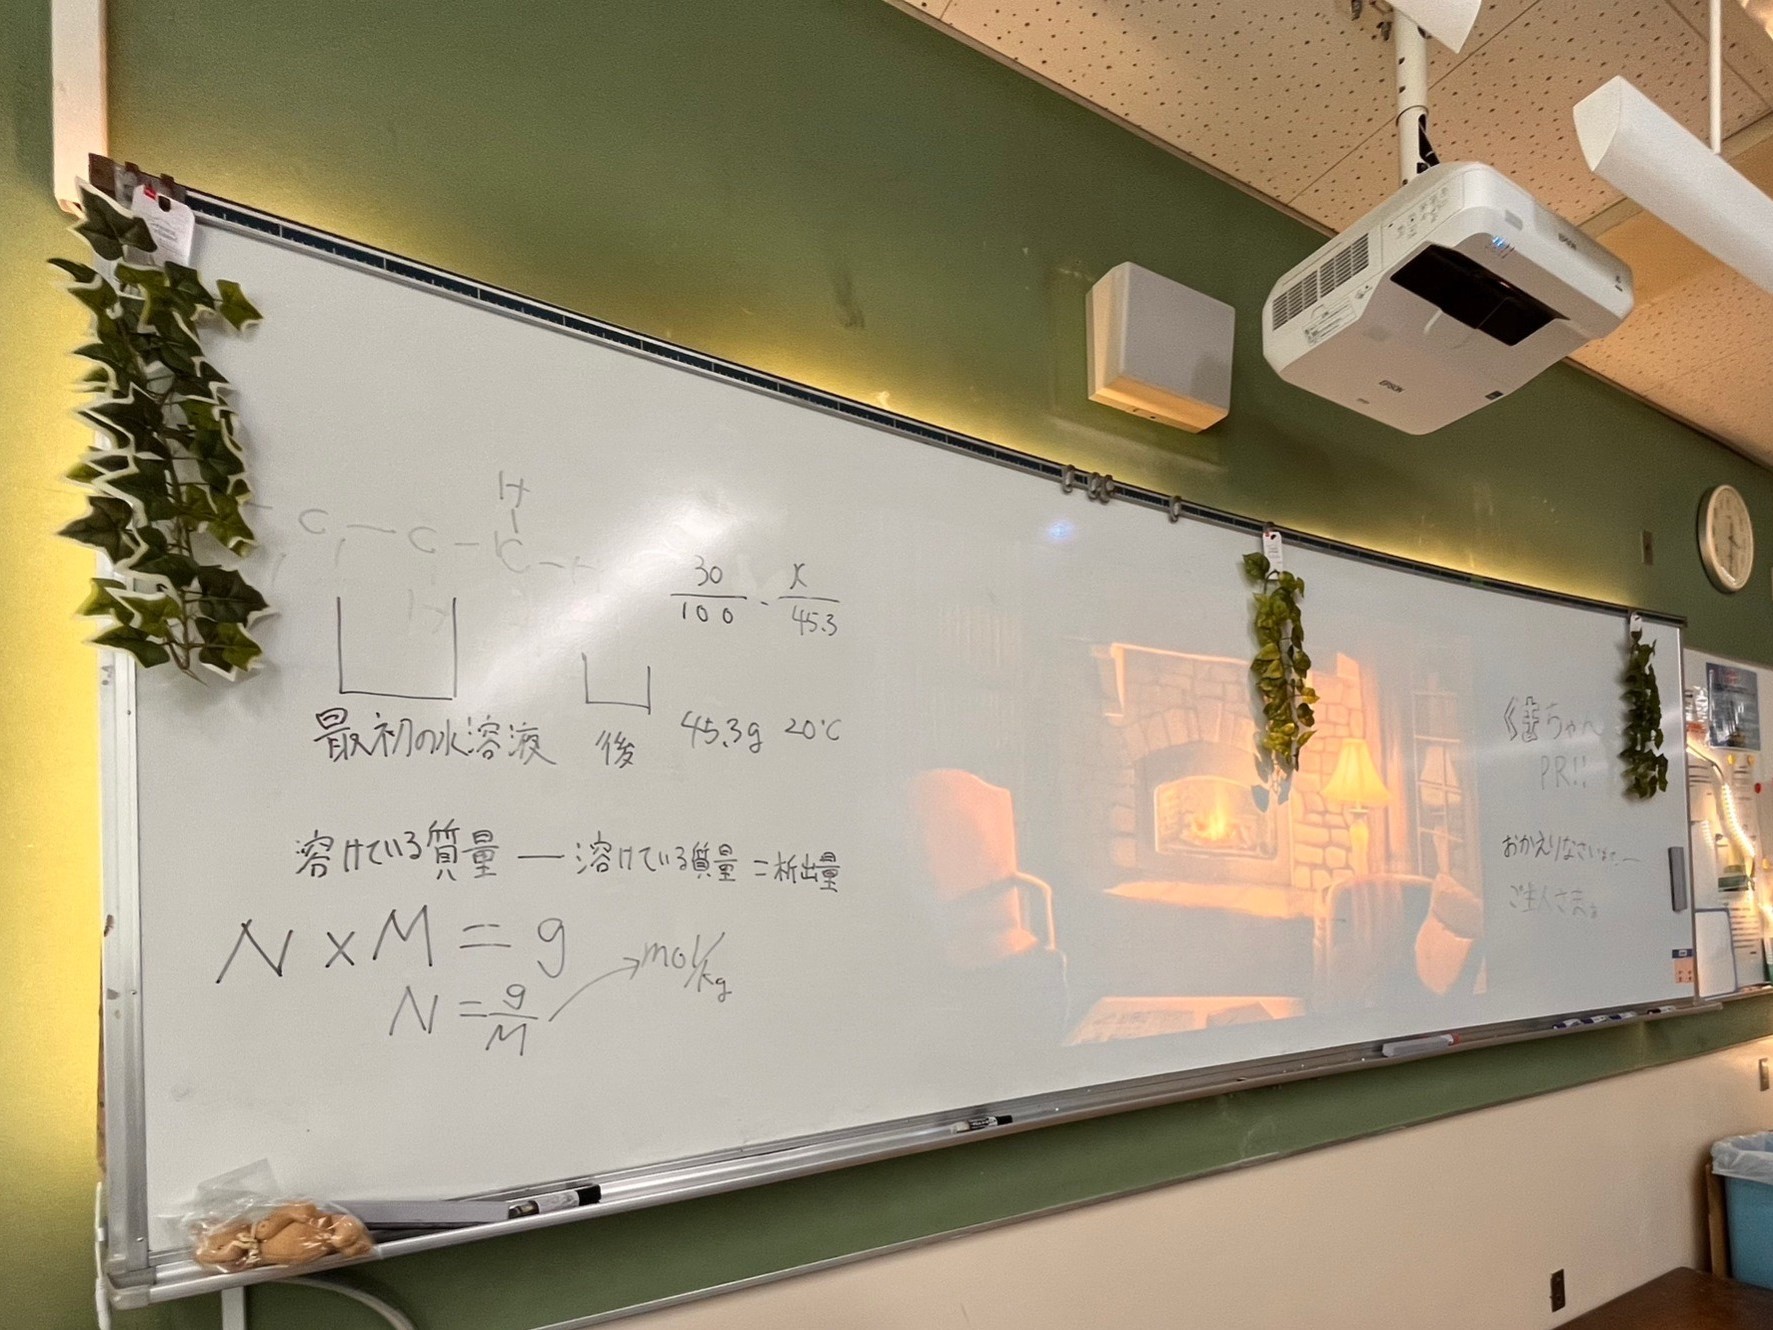 H
C — C — C —
H
30 x
100 45.3
最初の水溶液 後 45.3g 20℃
溶けている質量 — 溶けている質量 = 析出量
N × M = g
N = g/M → mol/kg
ちゃん
PR!!
おかえりなさいませ
ご主人さま。
EPSON
EPSON